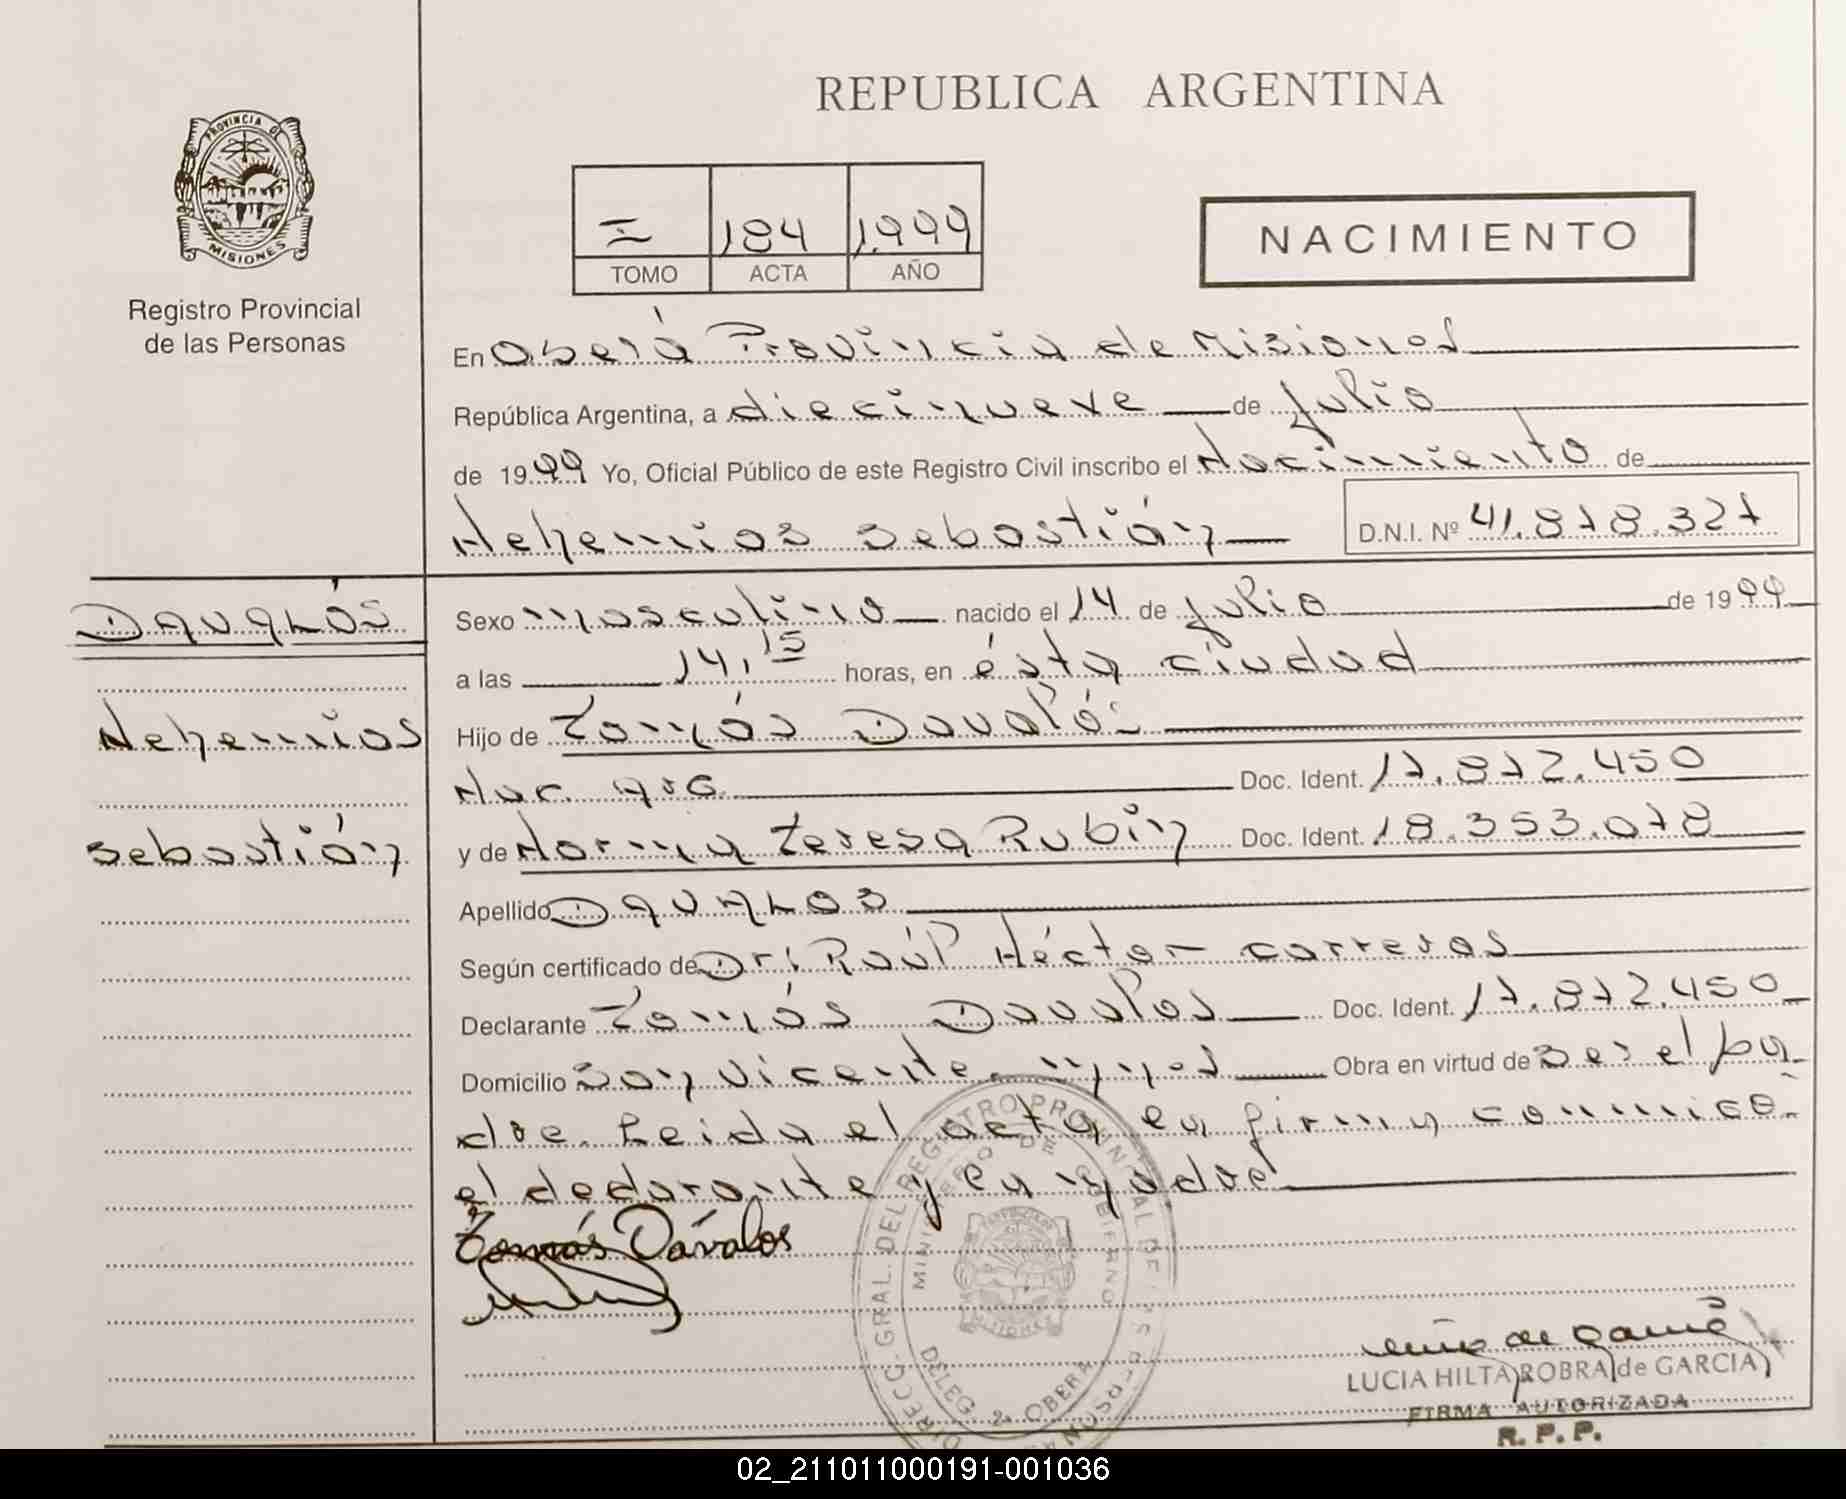 REPUBLICA ARGENTINA
PROVINCIA DE
MISIONES
Registro Provincial
de las Personas
I 184 1.999
TOMO ACTA AÑO
NACIMIENTO
En Oberá Provincia de Misiones
República Argentina, a diecinueve de Julio
de 1999 Yo, Oficial Público de este Registro Civil inscribo el Nacimiento de
Nehemias Sebastián D.N.I. Nº 41.878.327
DAVALÓS
Nehemias
Sebastián
Sexo masculino nacido el 14 de julio de 1999
a las 14,15 horas, en ésta ciudad
Hijo de Tomás Davalós
Nac. arg. Doc. Ident. 17.872.450
y de Norma Teresa Rubin Doc. Ident. 18.353.078
Apellido DAVALOS
Según certificado de Dr. Raúl Héctor Carreras
Declarante Tomás Davalos Doc. Ident. 17.872.450
Domicilio San Vicente. Mnes Obra en virtud de ser el pa-
dre. Leida el acta la firma conmigo
el declarante y la madre
Tomás Dávalos
DIRECC. GRAL. DEL REGISTRO PROVINCIAL DE LAS PERSONAS
MINISTERIO DE GOBIERNO
DELEG. 2a OBERA
LUCIA HILTA ROBRA de GARCIA
FIRMA AUTORIZADA
R. P. P.
02_211011000191-001036